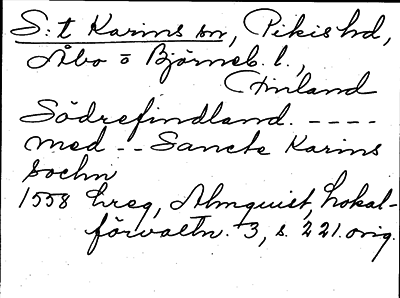 S:t Karins sn, Pikis hd,
Åbo o Björneb. l.,
Finland
Södrefindland. ----
med -- Sancte Karins
sochn
1558 Ereg, Almquist, Lokal-
förvaltn. 3, s. 221. orig.